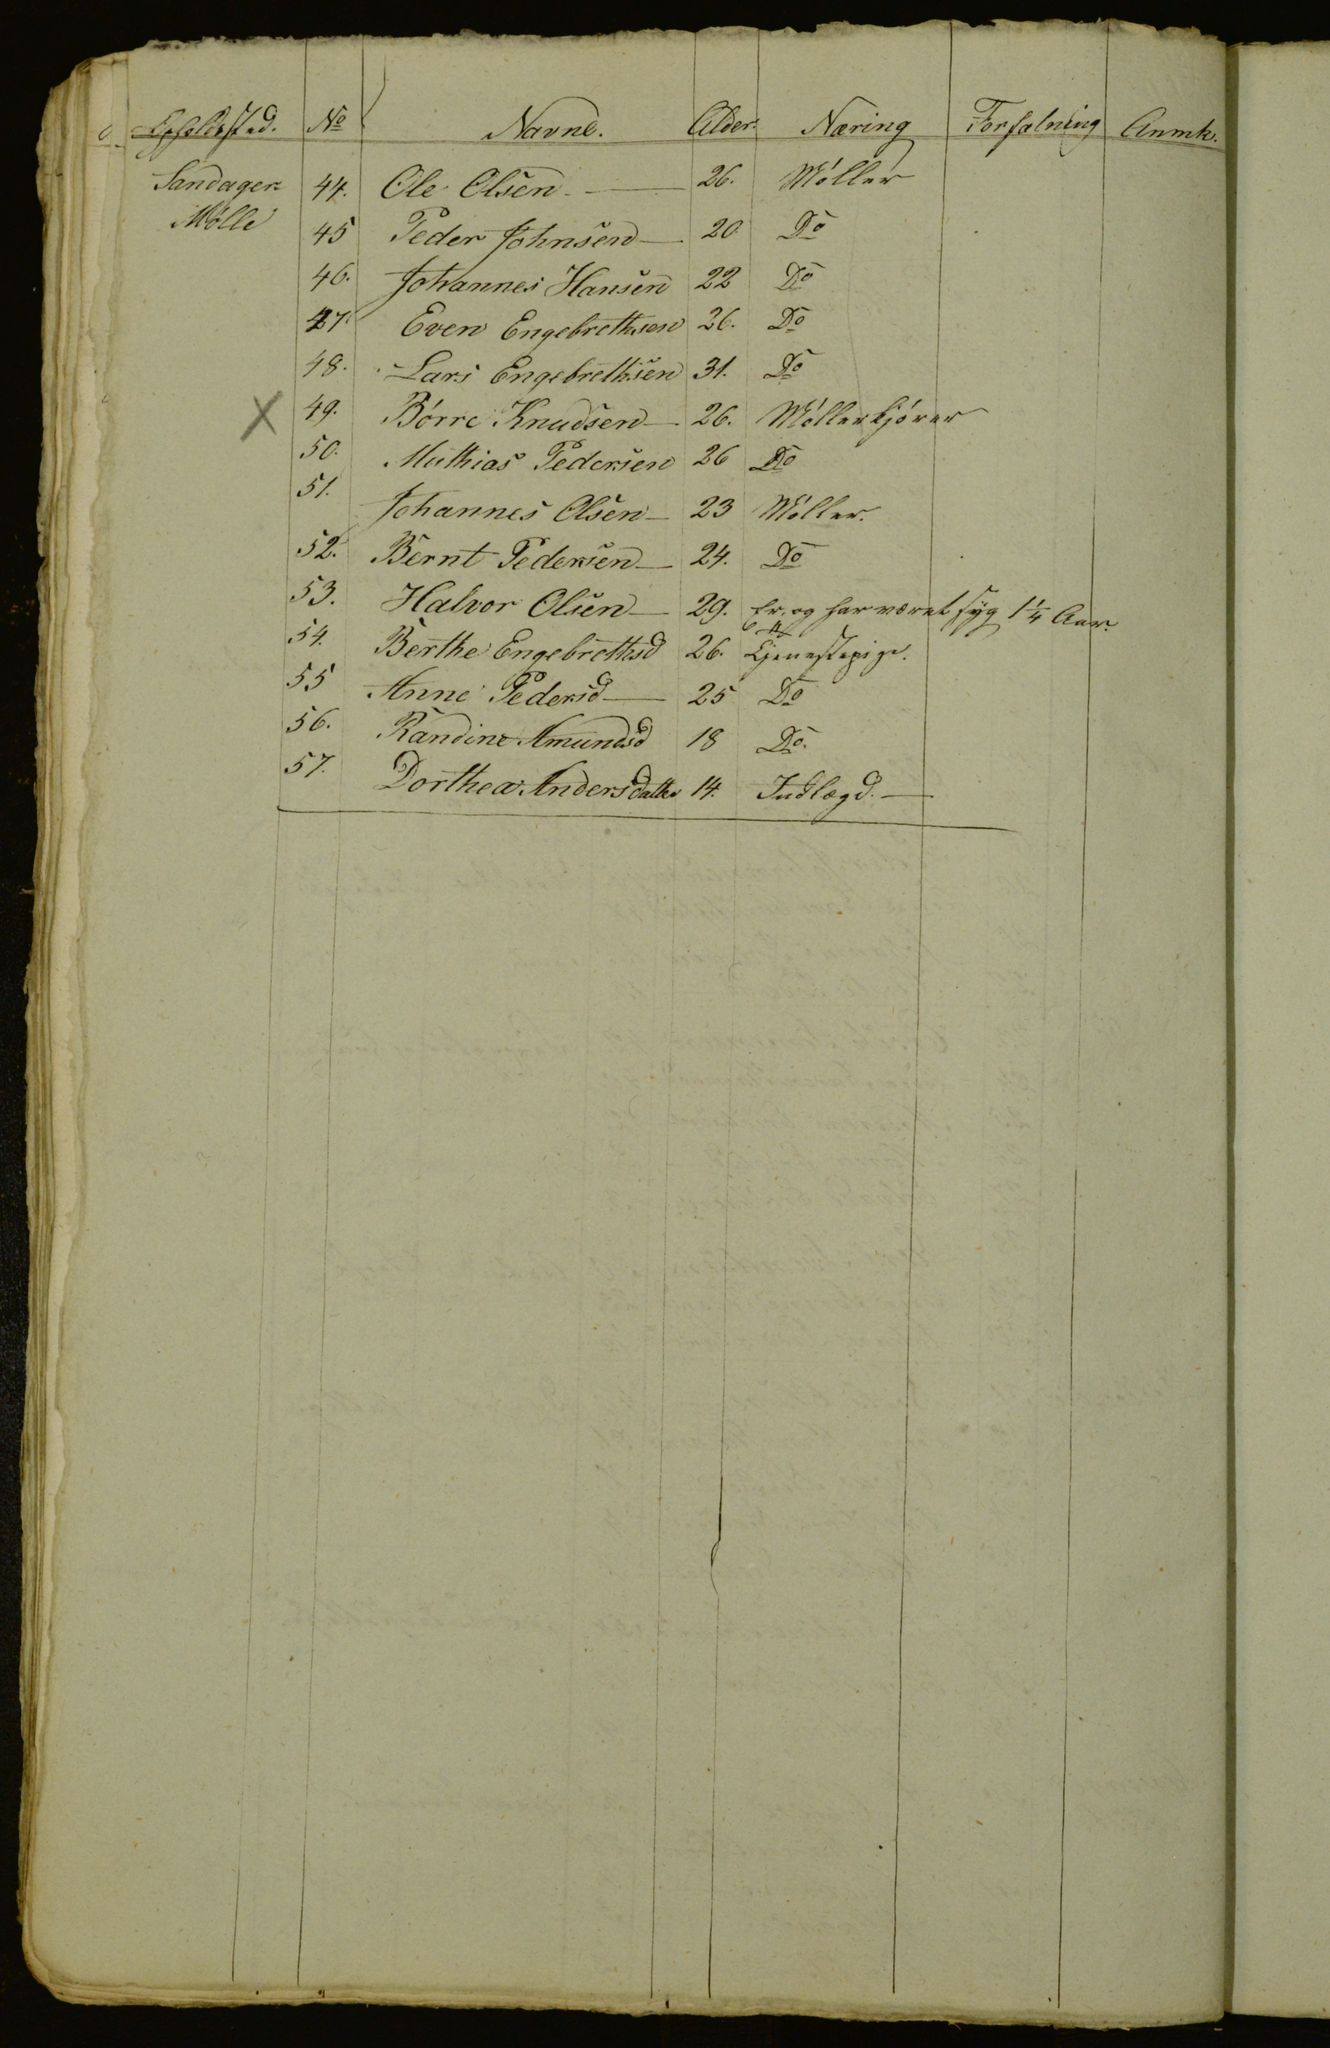 Opholdsted. No Navne. Alder. Næring Forfatning Anmk.
Sandager 44. Ole Olsen - 26. Møller
Mølle 45 Peder Johnsen - 20 Do
46. Johannes Hansen 22 Do
47. Even Engebrethsen 26. Do
48. Lars Engebrethsen 31. Do
X 49. Børre Knudsen - 26. Møllerkjører
50. Mathias Pedersen 26 Do
51. Johannes Olsen - 23 Møller.
52. Bernt Pedersen - 24. Do
53. Halvor Olsen - 29. Er og har været syg 1 1/4 Aar.
54. Berthe Engebrethsd 26. Tjenestepige.
55 Anne Pedersd - 25 Do
56. Randine Amundsd 18 Do.
57. Dorthea Andersdatter 14. Indlægd. -